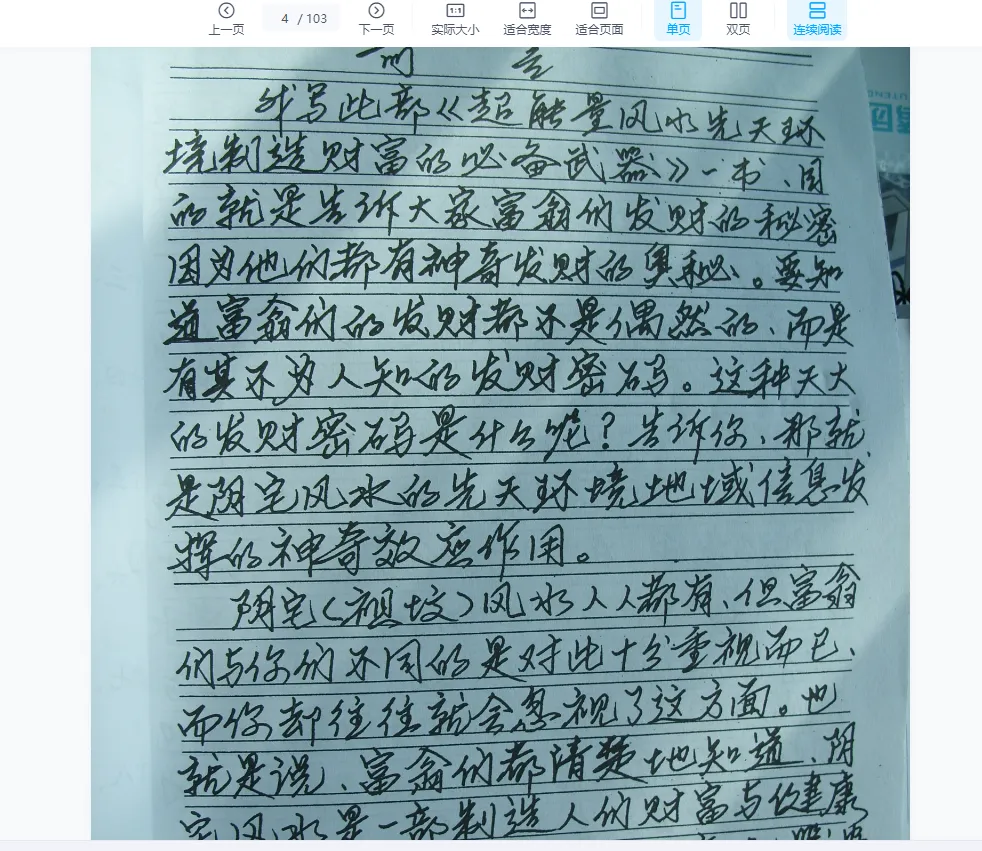 上一页 4 / 103 下一页 1:1 实际大小 适合宽度 适合页面 单页 双页 连续阅读
前言
我写此部《超能量风水先天环
境制造财富的必备武器》一书、目
的就是告诉大家富翁们发财的秘密
因为他们都有神奇发财的奥秘。要知
道富翁们的发财都不是偶然的、而是
有其不为人知的发财密码。这种天大
的发财密码是什么呢？告诉你、那就
是阴宅风水的先天环境地域信息发
挥的神奇效应作用。
阴宅（祖坟）风水人人都有、但富翁
们与你们不同的是对此十分重视而已、
而你却往往就会忽视了这方面。也
就是说、富翁们都清楚地知道、阴
宅风水是一部制造人们财富与健康